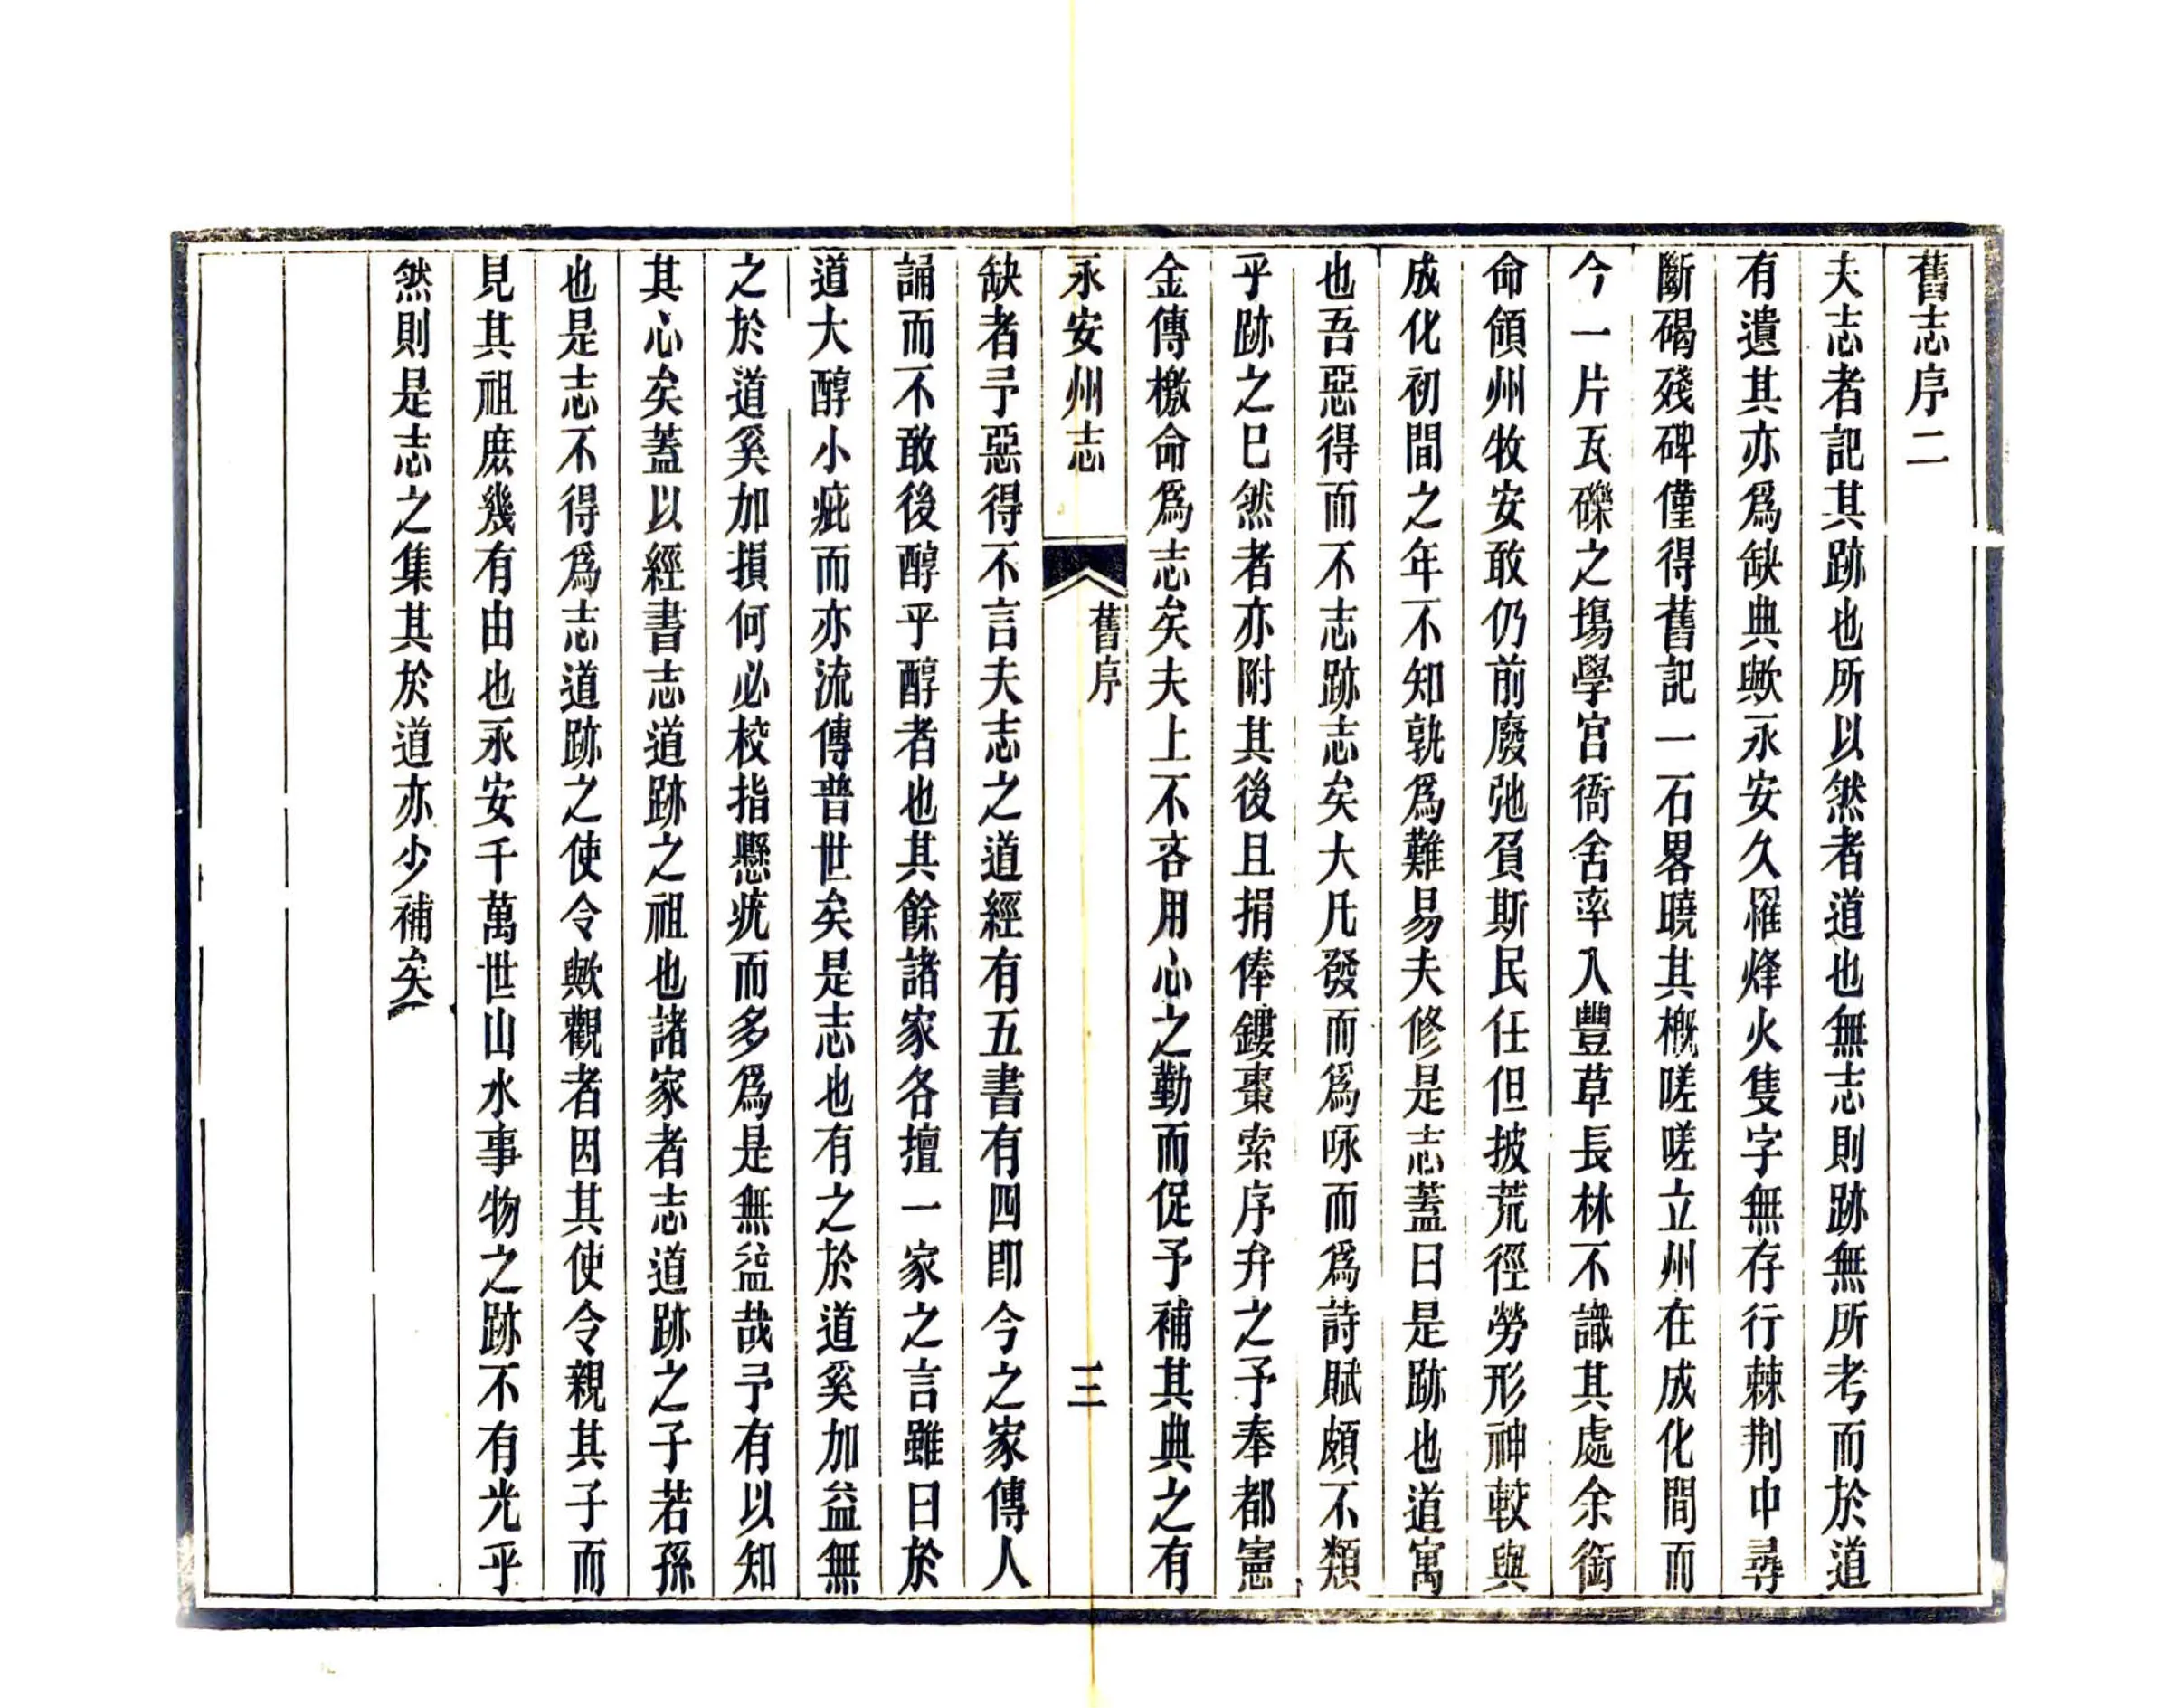 舊志序二
夫志者記其跡也所以然者道也無志則跡無所考而於道
有遺其亦爲缺典歟永安久罹烽火隻字無存行棘荆中尋
斷碣殘碑僅得舊記一石畧曉其槪嗟嗟立州在成化間而
今一片瓦礫之塲學宮衙舍率入豐草長林不識其處余銜
命領州牧安敢仍前廢弛負斯民任但披荒徑勞形神較與
成化初間之年不知孰爲難易夫修是志蓋曰是跡也道寓
也吾惡得而不志跡志矣大凡發而爲咏而爲詩賦頗不類
乎跡之巳然者亦附其後且捐俸鏤棗索序弁之予奉都憲
金傳檄命爲志矣夫上不吝用心之勤而促予補其典之有
永安州志
舊序
三
缺者予惡得不言夫志之道經有五書有四卽今之家傳人
誦而不敢後醇乎醇者也其餘諸家各擅一家之言雖曰於
道大醇小疵而亦流傳普世矣是志也有之於道奚加益無
之於道奚加損何必校指懸疣而多爲是無益哉予有以知
其心矣蓋以經書志道跡之祖也諸家者志道跡之子若孫
也是志不得爲志道跡之使令歟觀者因其使令親其子而
見其祖庶幾有由也永安千萬世山水事物之跡不有光乎
然則是志之集其於道亦少補矣